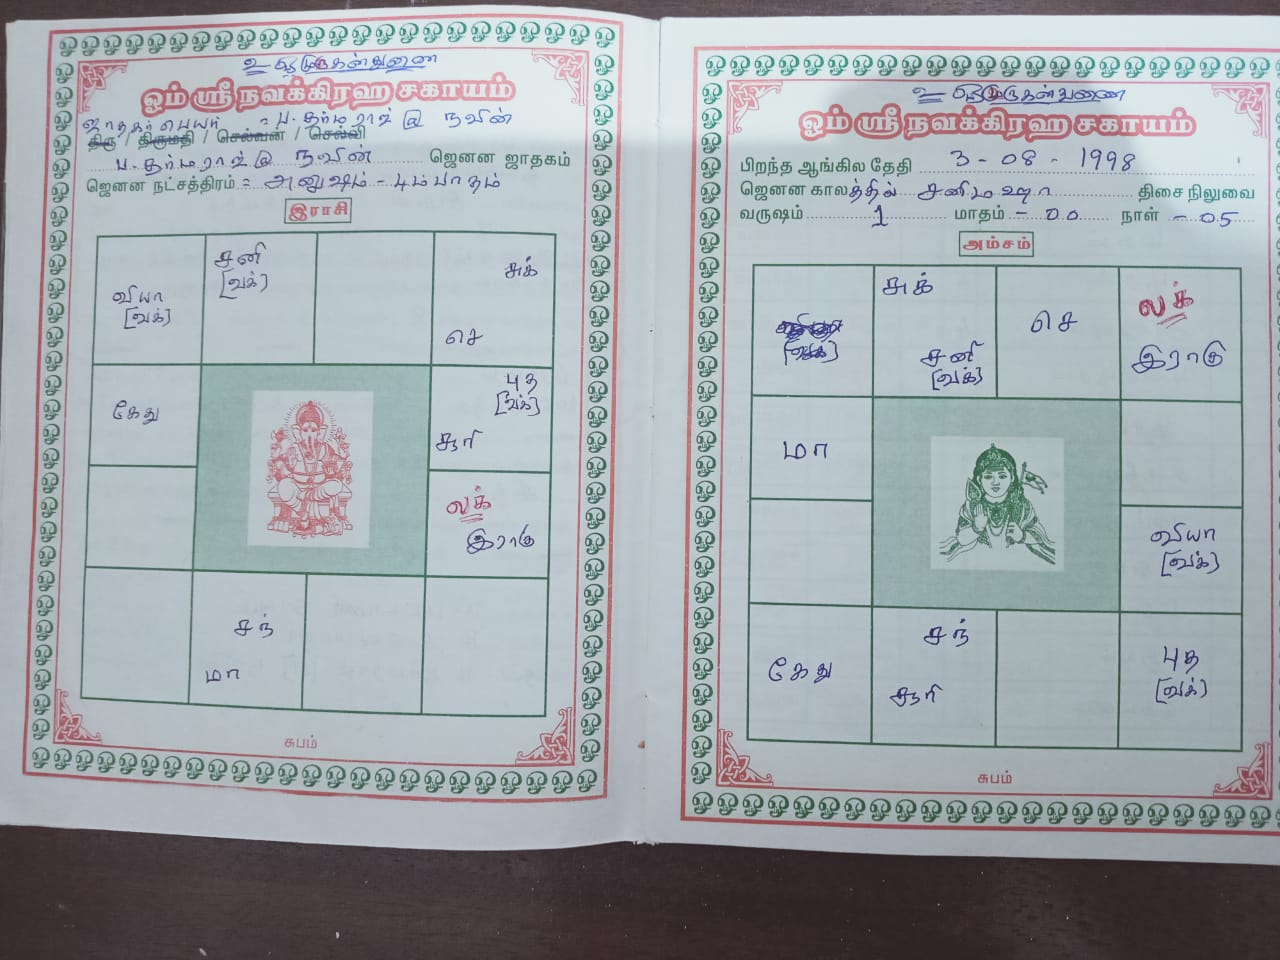 உ ஆறுமுகன் துணை
ஓம் ஸ்ரீ நவக்கிரஹ சகாயம்
ஜாதகர் பெயர் = ப. தர்மராஜ் @ நவின்
திரு / திருமதி / செல்வன் / செல்வி
ப. தர்மராஜ் @ நவின் ஜெனன ஜாதகம்
ஜெனன நட்சத்திரம் = அனுஷம் - 4ம் பாதம்
இராசி
வியா
[வக்]
சனி
[வக்]
சுக்
செ
கேது
புத
[வக்]
சூரி
லக்
இராகு
சந்
மா
சுபம்
உ ஆறுமுகன் துணை
ஓம் ஸ்ரீ நவக்கிரஹ சகாயம்
பிறந்த ஆங்கில தேதி 3-08-1998
ஜெனன காலத்தில் சனிமஹா திசை நிலுவை
வருஷம் 1 மாதம் - 00 நாள் - 05
அம்சம்
[வக்]
சுக்
சனி
[வக்]
செ
லக்
இராகு
மா
வியா
[வக்]
கேது
சந்
சூரி
புத
[வக்]
சுபம்